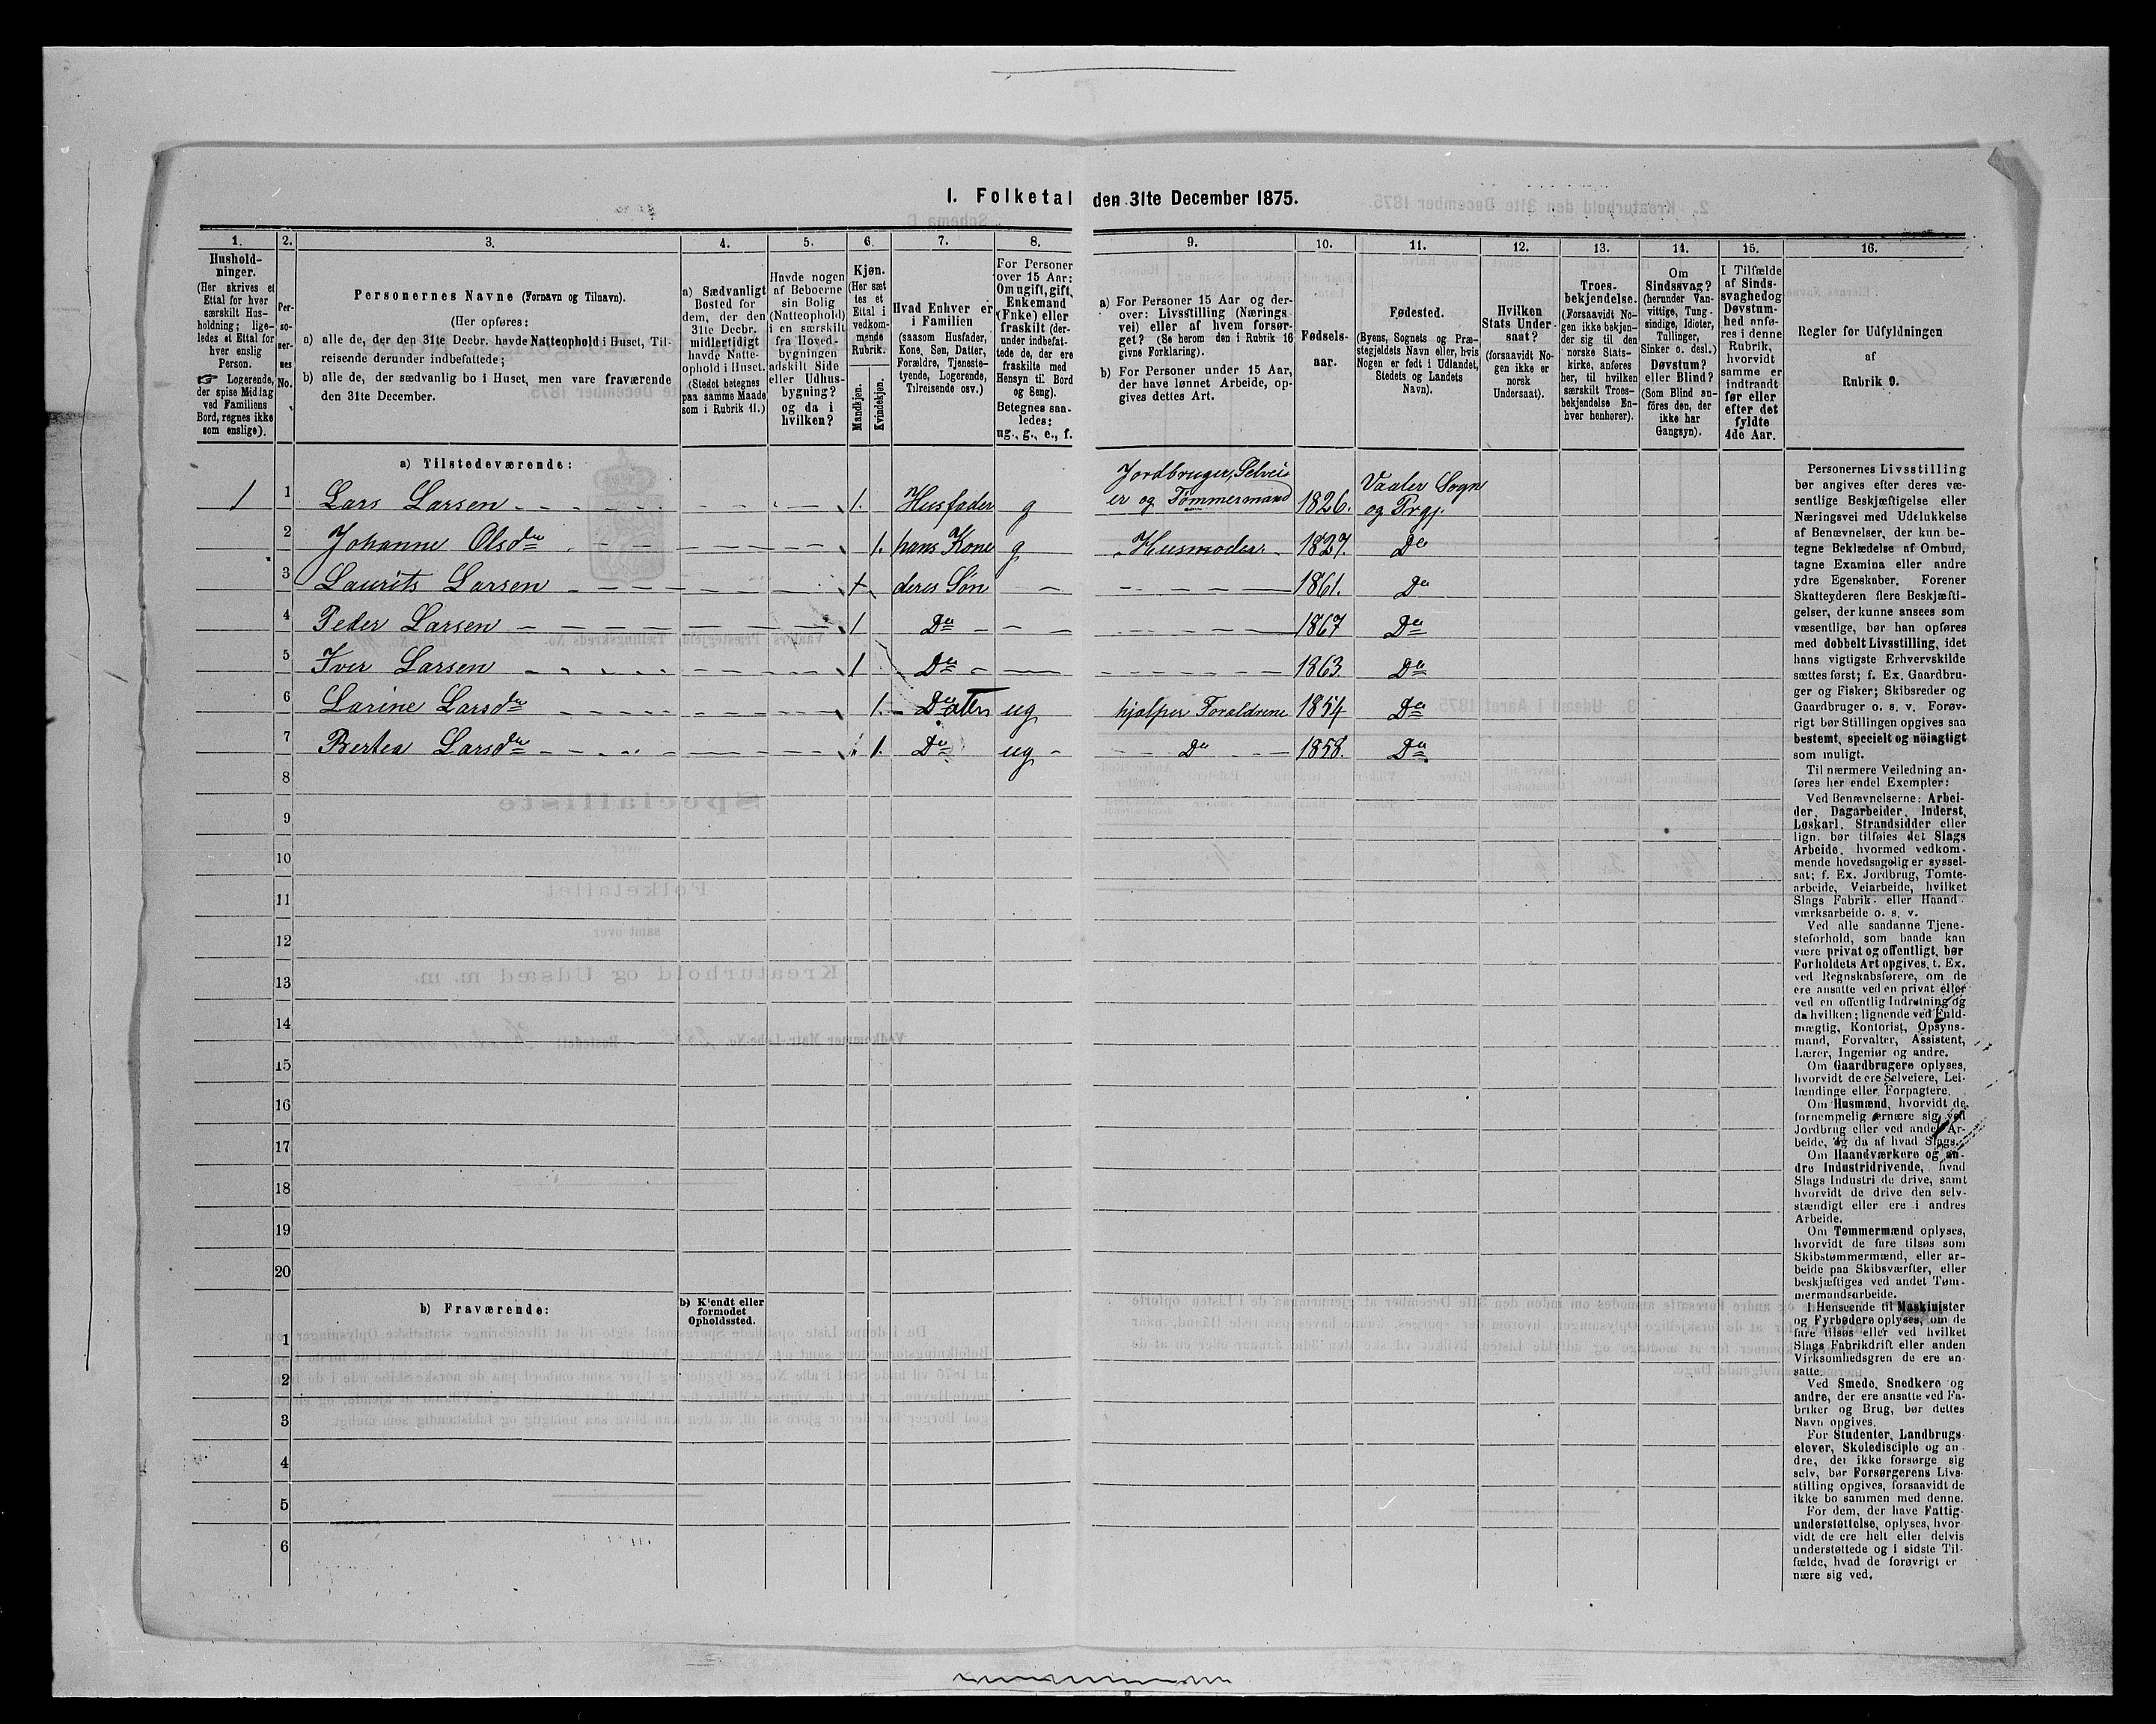 I. Folketal den 31te December 1875.
1.
2.
3.
4.
5.
6.
7.
8.
9.
10.
11.
12.
13.
14.
15.
16.
Hushold-
ninger.
(Her skrives et
Ettal for hver
særskilt Hus-
holdning; lige-
ledes et Ettal for
hver enslig
Person.
☞ Logerende,
der spise Middag
ved Familiens
Bord, regnes ikke
som enslige).
Per-
so-
ner-
nes
No.
Personernes Navne (Fornavn og Tilnavn).
(Her opføres:
a) alle de, der den 31te Decbr. havde Natteophold i Huset, Til-
reisende derunder indbefattede;
b) alle de, der sædvanlig bo i Huset, men vare fraværende
den 31te December.
a) Sædvanligt
Bosted for
dem, der den
31te Decbr.
midlertidigt
havde Natte-
ophold i Huset.
(Stedet betegnes
paa samme Maade
som i Rubrik 11.)
Havde nogen
af Beboerne
sin Bolig
(Natteophold)
i en særskilt
fra Hoved-
bygningen
adskilt Side
eller Udhus-
bygning?
og da i
hvilken?
Kjøn.
(Her sæt
tes et
Ettal i
vedkom-
mende
Rubrik.
Mandkjøn.
Kvindekjøn.
Hvad Enhver er
i Familien
(saasom Husfader,
Kone, Søn, Datter,
Forældre, Tjeneste-
tyende, Logerende,
Tilreisende osv.)
For Personer
over 15 Aar:
Om ugift, gift,
Enkemand
(Enke) eller
fraskilt (der-
under indbefat-
tede de, der ere
fraskilte med
Hensyn til Bord
og Seng).
Betegnes saa-
ledes:
ug., g., e., f.
a) For Personer 15 Aar og der-
over: Livsstilling (Nærings
vei) eller af hvem forsør-
get? (Se herom den i Rubrik 16
givne Forklaring).
b) For Personer under 15 Aar,
der have lønnet Arbeide, op-
gives dettes Art.
Fødsels-
aar.
Fødested.
(Byens, Sognets og Præ-
stegjeldets Navn eller, hvis
Nogen er født i Udlandet,
Stedets og Landets
Navn).
Hvilken
Stats Under-
saat?
(forsaavidt No-
gen ikke er
norsk
Undersaat).
Troes-
bekjendelse.
(Forsaavidt No-
gen ikke bekjen-
der sig til den
norske Stats-
kirke, anføres
her, til hvilken
særskilt Troes-
bekjendelse En-
hver henhører).
Om
Sindssvag?
(herunder Van-
vittige, Tung-
sindige, Idioter,
Tullinger,
Sinker o. desl.)
Døvstum?
eller Blind?
(Som Blind an-
føres den, der
ikke har
Gangsyn).
I Tilfælde
af Sinds-
svaghed og
Døvstum-
hed anfø-
res i denne
Rubrik,
hvorvidt
samme er
indtraadt
før eller
efter det
fyldte
4de Aar.
Regler for Udfyldningen
af
Rubrik 9.
a) Tilstedeværende:
1 1 Lars Larsen 1. Husfader g Jordbruger, Selvei-
er og Tømmermand 1826. Vaaler Sogn
og Prgj.
2 Johanne Olsdtr 1. hans Kone g Husmoder 1827. Do
3 Laurits Larsen 1 deres Søn 1861. Do
4 Peder Larsen 1 Do 1867 Do
5 Iver Larsen 1 Do 1863. Do
6 Larine Larsdtr 1. Datter ug hjælper Forældrene 1854 Do
7 Bertea Larsdtr 1. Do ug Do 1858. Do
8
9
10
11
12
13
14
15
16
17
18
19
20
b) Fraværende:
b) Kjendt eller
formodet
Opholdssted.
1
2
3
4
5
6
Personernes Livsstilling
bør angives efter deres væ-
sentlige Beskjæftigelse eller
Næringsvei med Udelukkelse
af Benævnelser, der kun be-
tegne Beklædelse af Ombud,
tagne Examina eller andre
ydre Egenskaber. Forener
Skatteyderen flere Beskjæfti-
gelser, der kunne ansees som
væsentlige, bør han opføres
med dobbelt Livsstilling, idet
hans vigtigste Erhvervskilde
sættes først; f. Ex. Gaardbru-
ger og Fisker; Skibsreder og
Gaardbruger o. s. v. Forøv-
rigt bør Stillingen opgives saa
bestemt, specielt og nöiagtigt
som muligt.
Til nærmere Veiledning an-
føres her endel Exempler:
Ved Benævnelserne: Arbei-
der, Dagarbeider, Inderst,
Løskarl, Strandsidder eller
lign. bør tilføies det Slags
Arbeide, hvormed vedkom-
mende hovedsagelig er syssel-
sat; f. Ex. Jordbrug, Tomte-
arbeide, Veiarbeide, hvilket
Slags Fabrik- eller Haand-
værksarbeide o. s. v.
Ved alle saadanne Tjene-
steforhold, som baade kan
være privat og offentligt, bør
Forholdets Art opgives, t. Ex.
ved Regnskabsførere, om de
ere ansatte ved en privat eller
ved en offentlig Indretning og
da hvilken; lignende ved Fuld-
mægtig, Kontorist, Opsyns-
mand, Forvalter, Assistent,
Lærer, Ingeniør og andre.
Om Gaardbrugere oplyses,
hvorvidt de ere Selveiere, Lei-
lændinge eller Forpagtere.
Om Husmænd, hvorvidt de
fornemmelig ernære sig ved
Jordbrug eller ved andet Ar-
beide, og da af hvad Slags.
Om Haandværkere og an-
dre Industridrivende, hvad
Slags Industri de drive, samt
hvorvidt de drive den selv-
stændigt eller ere i andres
Arbeide.
Om Tømmermænd oplyses,
hvorvidt de fare tilsøs som
Skibstømmermænd, eller ar-
beide paa Skibsværfter, eller
beskjæftiges ved andet Tøm-
mermandsarbeide.
I Henseende til Maskinister
og Fyrbødere oplyses, om de
fare tilsøs eller ved hvilket
Slags Fabrikdrift eller anden
Virksomhedsgren de ere an-
satte.
Ved Smede, Snedkere og
andre, der ere ansatte ved Fa-
briker og Brug, bør dettes
Navn opgives.
For Studenter, Landbrugs-
elever, Skoledisciple og an-
dre, der ikke forsørge sig
selv, bør Forsørgerens Livs-
stilling opgives, forsaavidt de
ikke bo sammen med denne.
For dem, der have Fattig-
understøttelse, oplyses, hvor-
vidt de ere helt eller delvis
understøttede og i sidste Til-
fælde, hvad de forøvrigt er
nære sig ved.